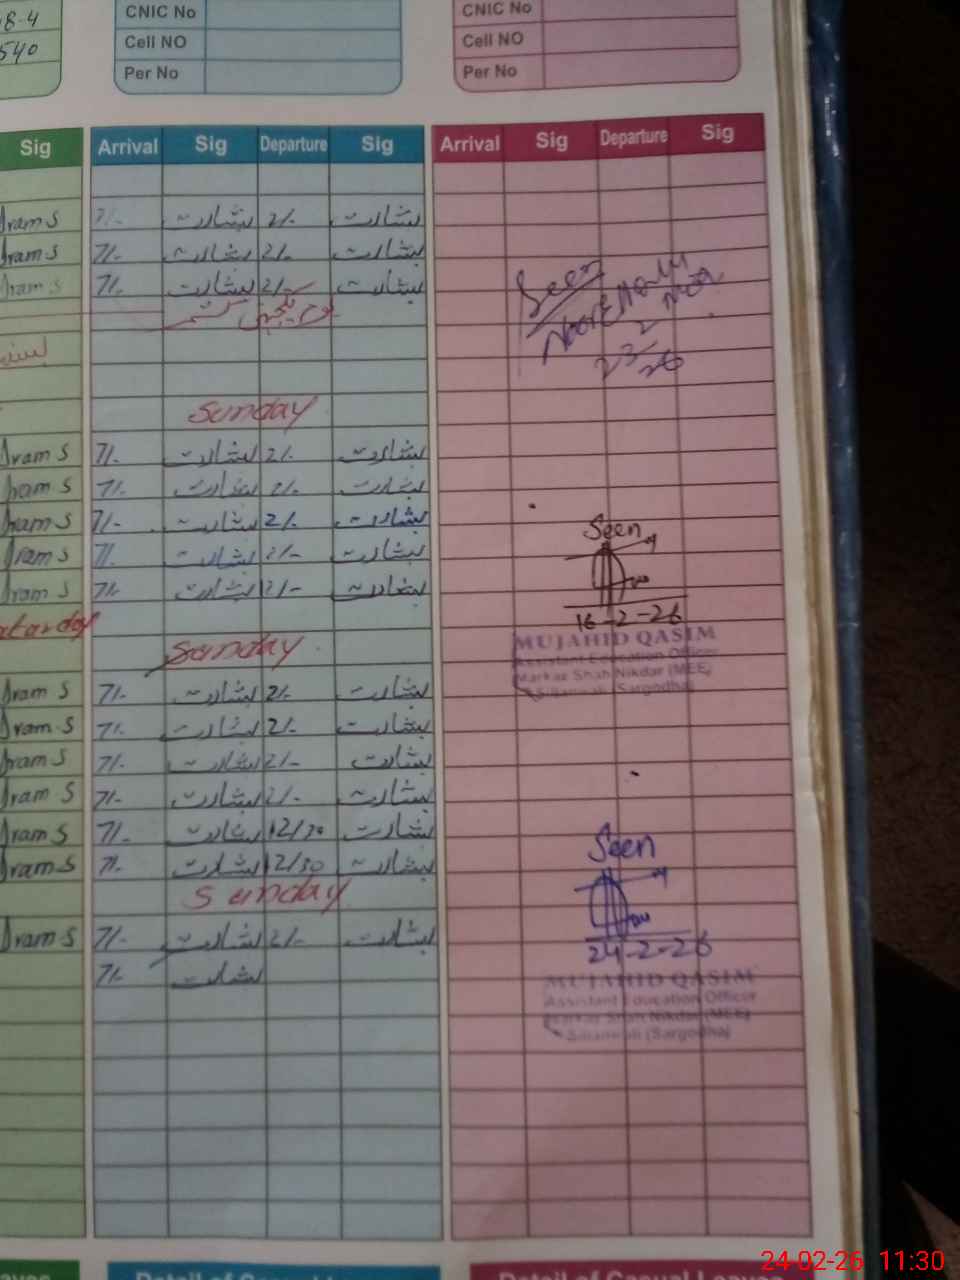 8-4
540
CNIC No
Cell NO
Per No
CNIC No
Cell NO
Per No
Sig
Arrival Sig Departure Sig
Arrival Sig Departure Sig
Iram S 7/- بشارت 2/- بشارت
Iram S 7/- بشارت 2/- بشارت
Iram S 7/- بشارت 2/- بشارت
Seen
23/2/26
Sunday
Iram S 7/- بشارت 2/- بشارت
Iram S 7/- بشارت 2/- بشارت
Iram S 7/- بشارت 2/- بشارت
Iram S 7/- بشارت 2/- بشارت
Iram S 7/- بشارت 2/- بشارت
Seen
16-2-26
MUJAHID QASIM
Assistant Education Officer
Markaz Shah Nikdar (MEE)
Sillanwali (Sargodha)
Saturday
Sunday
Iram S 7/- بشارت 2/- بشارت
Iram S 7/- بشارت 2/- بشارت
Iram S 7/- بشارت 2/- بشارت
Iram S 7/- بشارت 2/- بشارت
Iram S 7/- بشارت 12/30 بشارت
Iram S 7/- بشارت 12/30 بشارت
Sunday
Iram S 7/- بشارت 2/- بشارت
7/- بشارت
Seen
24-2-26
MUJAHID QASIM
Assistant Education Officer
Markaz Shah Nikdar (MEE)
Sillanwali (Sargodha)
24-02-26 11:30